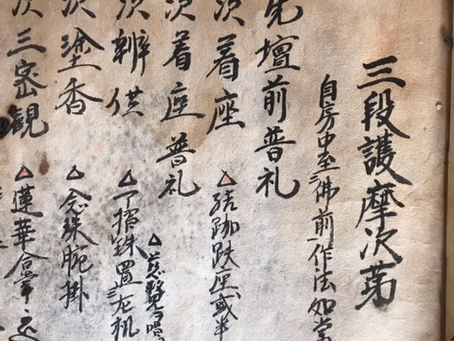 三段護摩次第
自房中至佛前作法如常
先壇前普礼
次着座 △結跏趺座或半
次着座普礼
△慈覺 唱
次辨供 △ 珠置左机
次塗香 △念珠腕掛
次三密観 △蓮華合掌